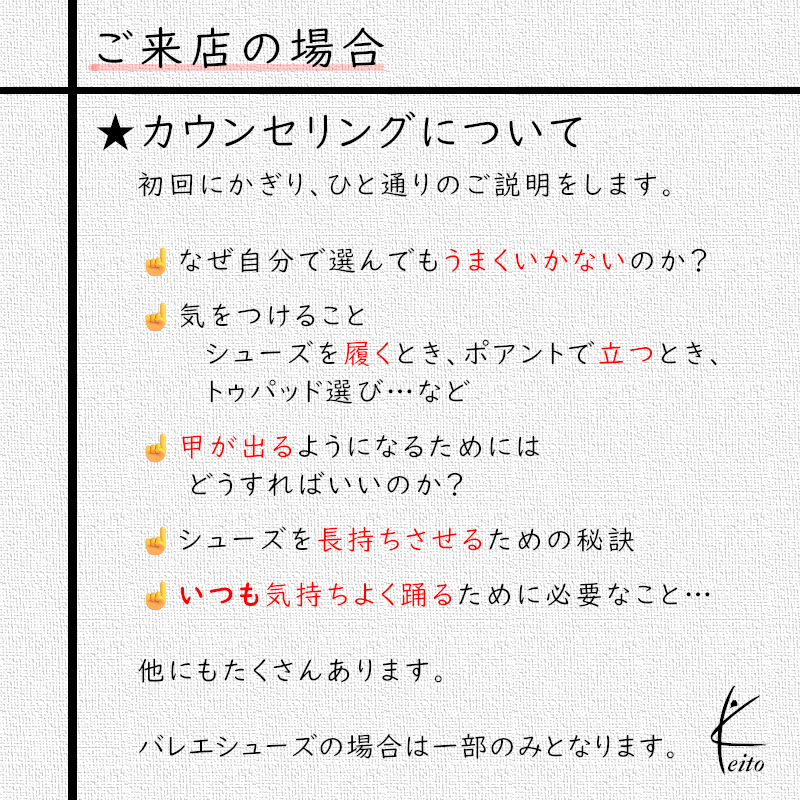 ご来店の場合
★カウンセリングについて
初回にかぎり、ひと通りのご説明をします。
☝なぜ自分で選んでもうまくいかないのか？
☝気をつけること
シューズを履くとき、ポアントで立つとき、
トゥパッド選び…など
☝甲が出るようになるためには
どうすればいいのか？
☝シューズを長持ちさせるための秘訣
☝いつも気持ちよく踊るために必要なこと…
他にもたくさんあります。
バレエシューズの場合は一部のみとなります。
Keito